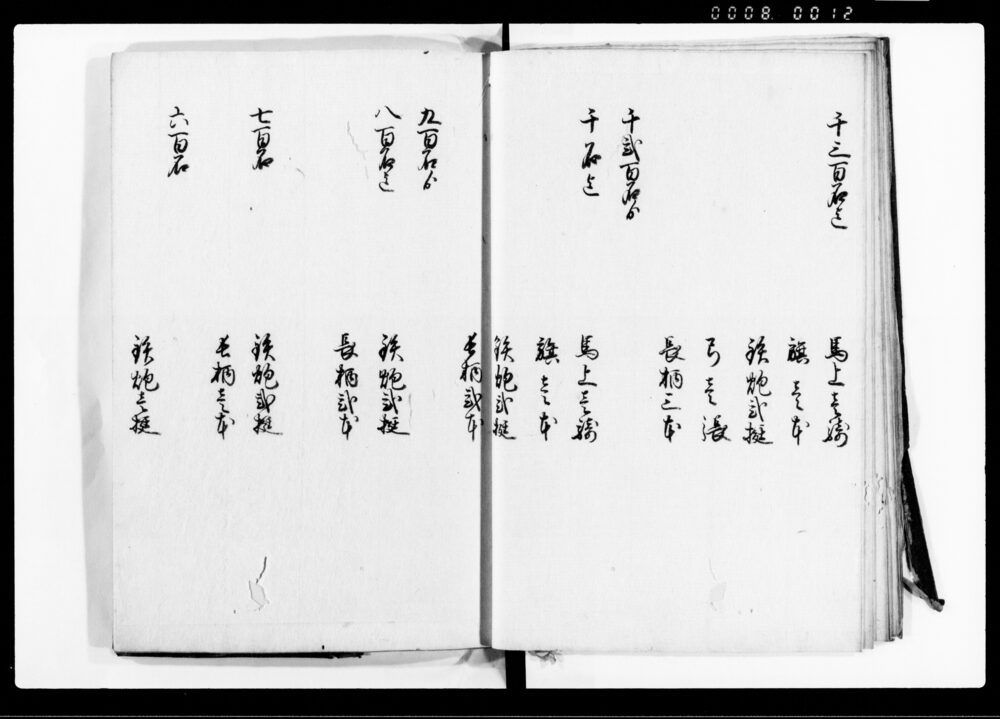 0008. 0012
千三百石迄
馬上壱騎
旗壱本
鉄炮弐挺
弓壱張
長柄三本
千弐百石ゟ
千石迄
馬上壱騎
旗壱本
鉄炮弐挺
長柄弐本
九百石ゟ
八百石迄
鉄炮弐挺
長柄弐本
七百石
鉄炮弐挺
長柄壱本
六百石
鉄炮壱挺